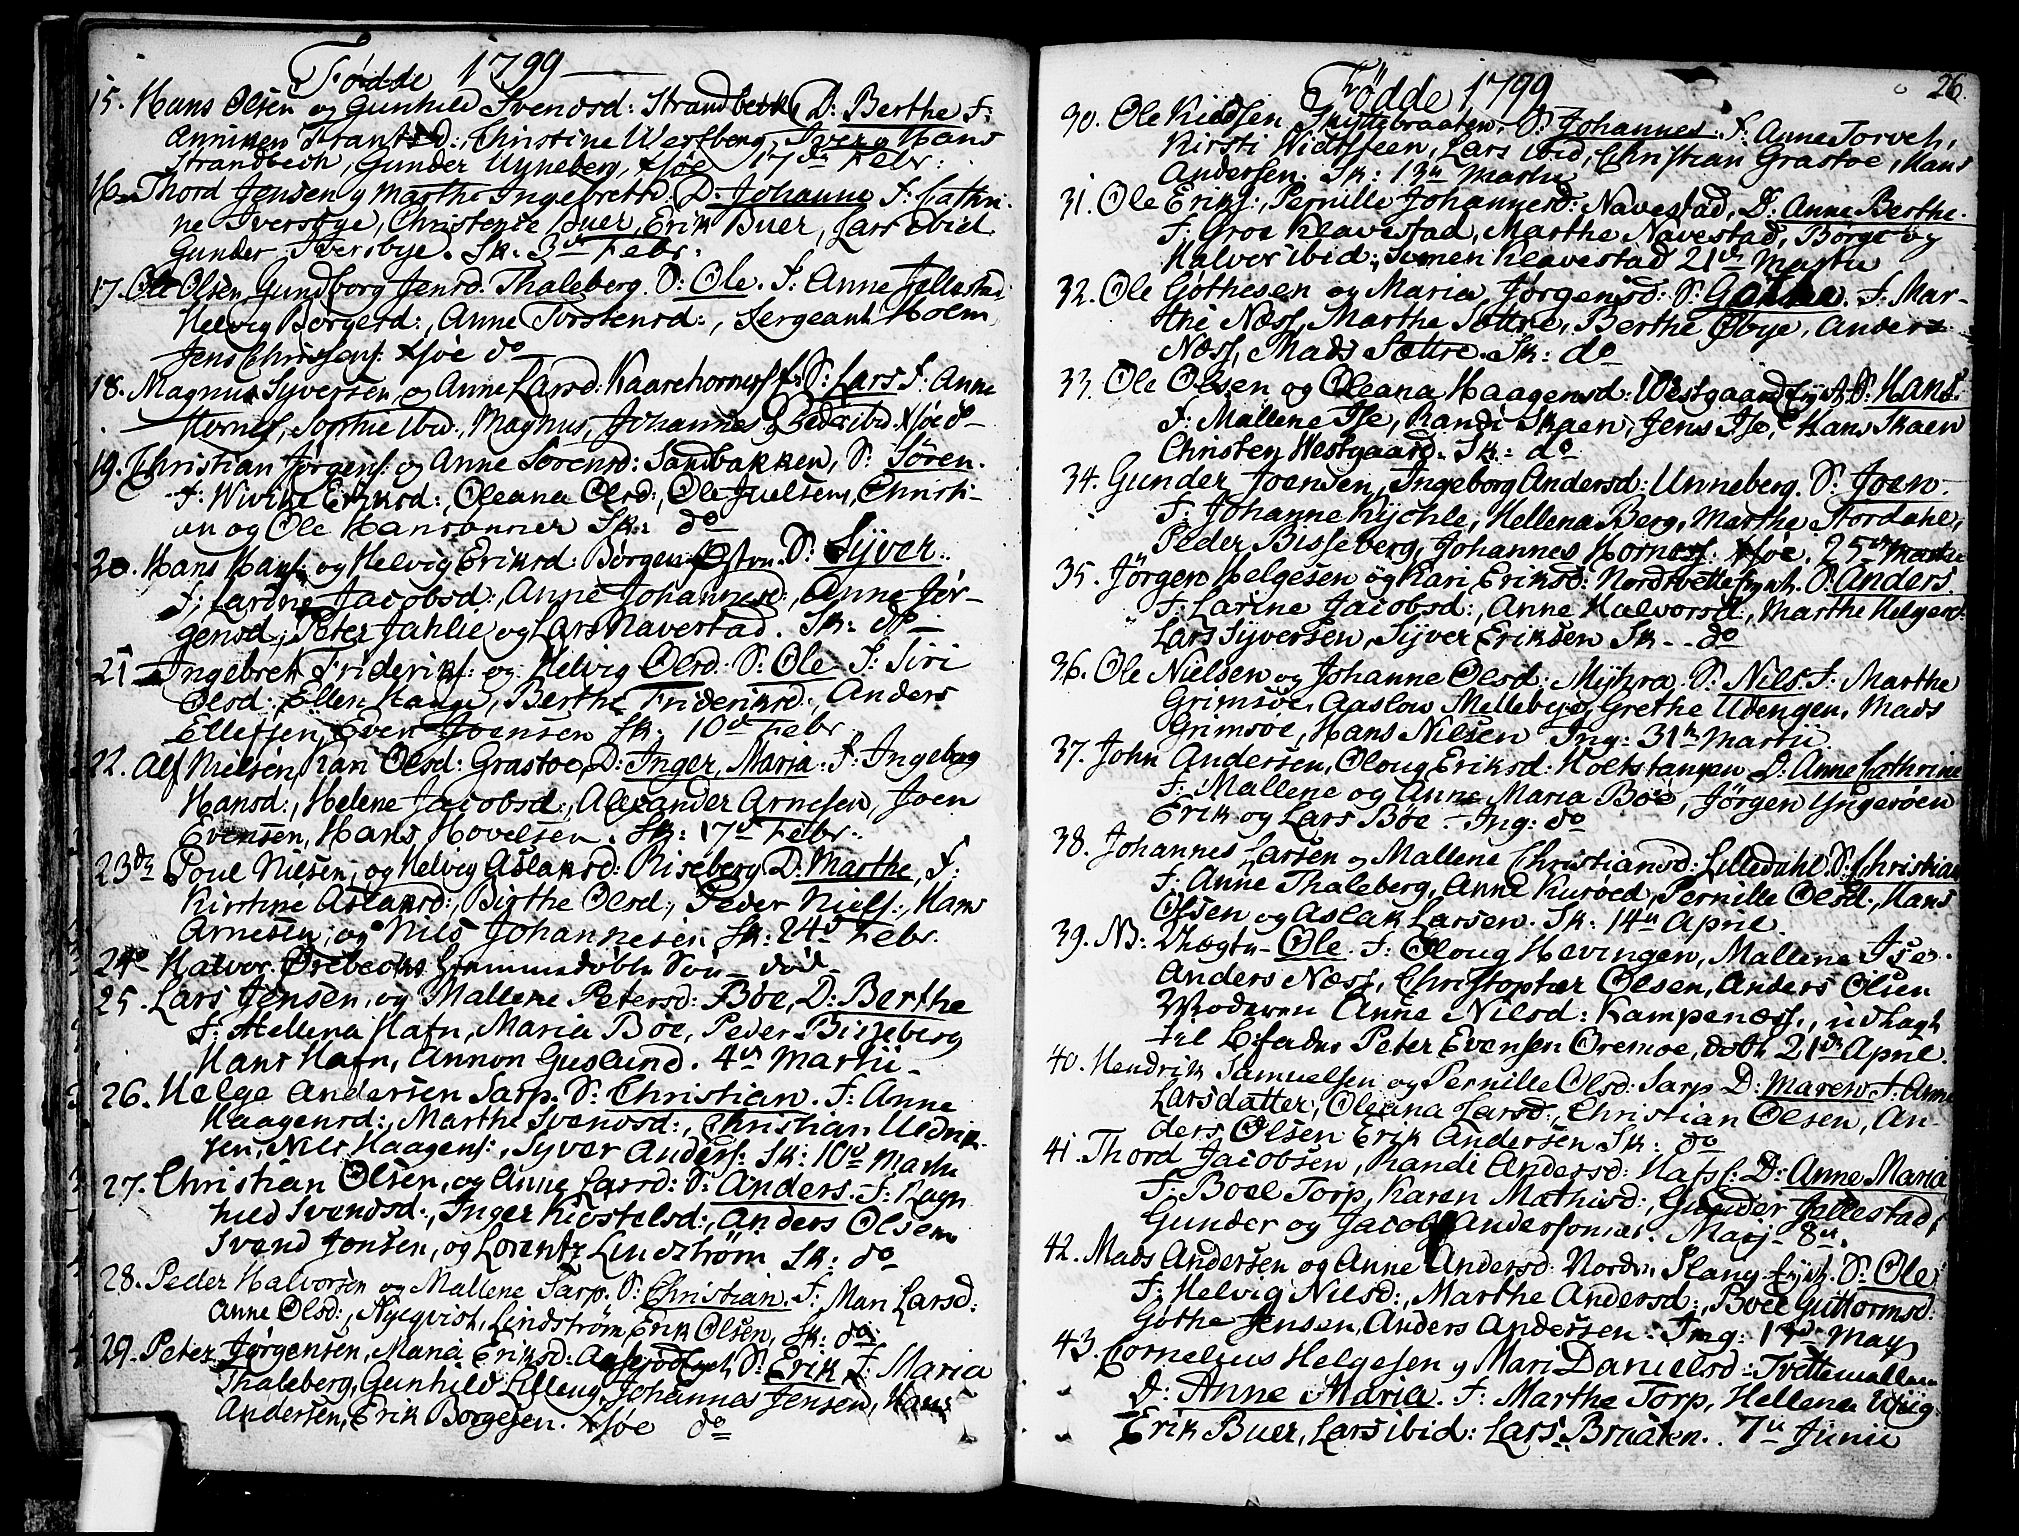 Fødde 1799
15. Hans Olsen og Gunhild Svendsd: Strandbech, D: Berthe F:
Anniken Frantzd:, Christine Westberg, Iver og Hans
Strandbech, Gunder Unneberg, 17de Febr:
16. Thord Jensen og Marthe Ingebretd: D: Johanne F: Cathri-
ne Iversbye, Christense Buer, Erik Buer, Lars ibid.
Gunder Iversbye. Sk: 3d Febr:
17. Ole Olsen, Gundborg Jensd. Thaleberg. S: Ole. F: Anne Jellestad
Helvig Borgersd:, Anne Torstensd:, Sergeant Holm,
Jens Christens: do
18. Magnus Syversen og Anne Larsd: Kaarehorness f: S: Lars F: Anne
Horness, Sophie ibid., Magnus, Johannes og Peder ibid do
19. Christian Jørgens: og Anne Sørensd: Sandbakken, S: Søren.
F: Wivike Eriksd:, Oleana Olsd:, Ole Juelsen, Christi-
an og Ole Hansønner Sk: do
20. Hans Hans: og Helvig Eriksd: Børgen S: Syver.
F: Larine Jacobsd:, Anne Johannesd:, Anne Jør-
gensd., Peter Jahlie og Lars Navestad. Sk: do
21. Ingebret Frideriks: og Helvig Olsd: S: Ole F: Siri
Olsd:, Ellen Hauge, Berthe Frideriksd:, Anders
Ellefsen, Even Joensen Sk: 10d Febr
22. Alf Nielsen, Kari Olsd: Grastoe, D: Inger Maria. F: Ingeborg
Hansd:, Helene Jacobsd:, Alexander Arnesen, Joen
Evensen, Hans Hovelsen. Sk: 17d Febr:
23. Poul Nielsen, og Helvig Aslaksd: Riseberg D: Marthe, F:
Kirstine Aslaksd:, Birthe Olsd:, Peder Niels:, Hans
Arnesen, og Nils Johannesen Sk: 24d Febr.
24. Halvor Ørebecks hiemmedøbte Søn død
25. Lars Jensen, og Mallene Petersd: Bøe, D: Berthe
F: Hellena Hafn, Maria Bøe, Peder Bisseberg
Hans Hafn, Annon Guslund. 4de Martii
26. Helge Andersen Sarp. S: Christian. F: Anne
Haagensd:, Marthe Svendsd:, Christian
sen, Nils Haagens:, Syver Anders: Sk: 10d Martii
27. Christian Olsen, og Anne Larsd: S: Anders. F: Ragn
hild Svendsd:, Inger Kiostelsd:, Anders Olsen
Svend Jonsen, og Lorentz Lindstrøm Sk: do
28. Peder Halvorsen og Mallene Sarp. S: Christian. F: Mari Larsd:
Anne Olsd:, Nyeqvist, Lindstrøm, Erik Olsen, Sk: do
29. Peter Jørgensen, Maria Eriksd: S: Erik F: Maria
Thaleberg, Gunhild Lilleng, Johannes Jensen, Hans
Andersen, Erik Borgesen. do
26.
Fødde 1799
30. Ole Kieldsen Skyttebraaten, S: Johannes. F: Anne Torveh,
Kirsti Widtsteen, Lars ibid, Christian Grastoe, Hans
Andersen. Sk: 13de Martii
31. Ole Eriks:, Pernille Johannesd: Navestad, D: Anne Berthe.
F: Groe Klavestad, Marthe Navestad, Børge og
Halvor ibid:, Simen Klavestad 21de Martii
32. Ole Gøthesen og Maria Jørgensd: S: F: Mar-
the Næss, Marthe Sættre, Berthe Øbye, Anders
Næss, Mads Sættre. Sk: do
33. Ole Olsen og Oleana Haagensd: Westgaard Eyet. S: Hans.
F: Mallene Ise, Randi Skaen, Jens Ise, Hans Skaen
Christen Westgaard. Sk: do
34. Gunder Joensen, Ingeborg Andersd: Unneberg. S: Joen
F: Johanne Kychle, Hellena Berg, Marthe Stordahl,
Peder Bisseberg, Johannes Horness. 25de Martii
35. Jørgen Helgesen og Kari Eriksd: Nordtvette S: Anders.
F: Larine Jacobsd:, Anne Halvorsd:, Marthe Helgesd:
Lars Syversen, Syver Eriksen Sk. do
36. Ole Nielsen og Johanne Olsd: Myhra. S: Nils F: Marthe
Grimsøe, Aaslow Melleby, Grethe Udengen, Mads
Grimsøe, Hans Nilsen Ing: 31te Martii
37. John Andersen, Oloug Eriksd: Holtstangen D: Anne Cathrine
F: Mallene og Anne Maria Bøe, Jørgen Yngesøen
Erik og Lars Bøe. Ing: do
38. Johannes Larsen og Mallene Christiansd: Lilledahl S: Christian
F: Anne Thaleberg, Anne Kurøed, Pernille Olsd:, Hans
Olsen og Aslak Larsen. Sk: 14de April.
39. NB: Uægte Ole. F: Oloug Hevingen, Mallene Ise.
Anders Næss, Christopher Olsen, Anders Olsen
Moderen Anne Nilsd: Kampenæss., udlagt
til B:fader Peter Evensen Oremoe, døbt 21de April.
40. Hendrik Samuelsen og Pernille Olsd: Sarp D: Maren F: Anne
Larsdatter, Oleana Larsd:, Christian Olsen, An-
ders Olsen Erik Andersen Sk: do
41. Thord Jacobsen, Randi Andersd: Hafs: D: Anne Maria
F: Boel Torp, Karen Mathisd:, Gunder Jellestad,
Gunder og Jacob Anderssønner. Maij 8de.
42. Mads Andersen og Anne Andersd: Nordre Slang S: Ole
F: Helvig Nilsd:, Marthe Andersd:, Boel Guttormsd:
Gøthe Jensen, Anders Andersen. Ing: May
43. Cornelius Helgesen og Mari Danielsd: Tvettemallen
D: Anne Maria. F: Marthe Torp, Hellena
Erik Buer, Lars ibid: Lars Braaten. 7de Junii